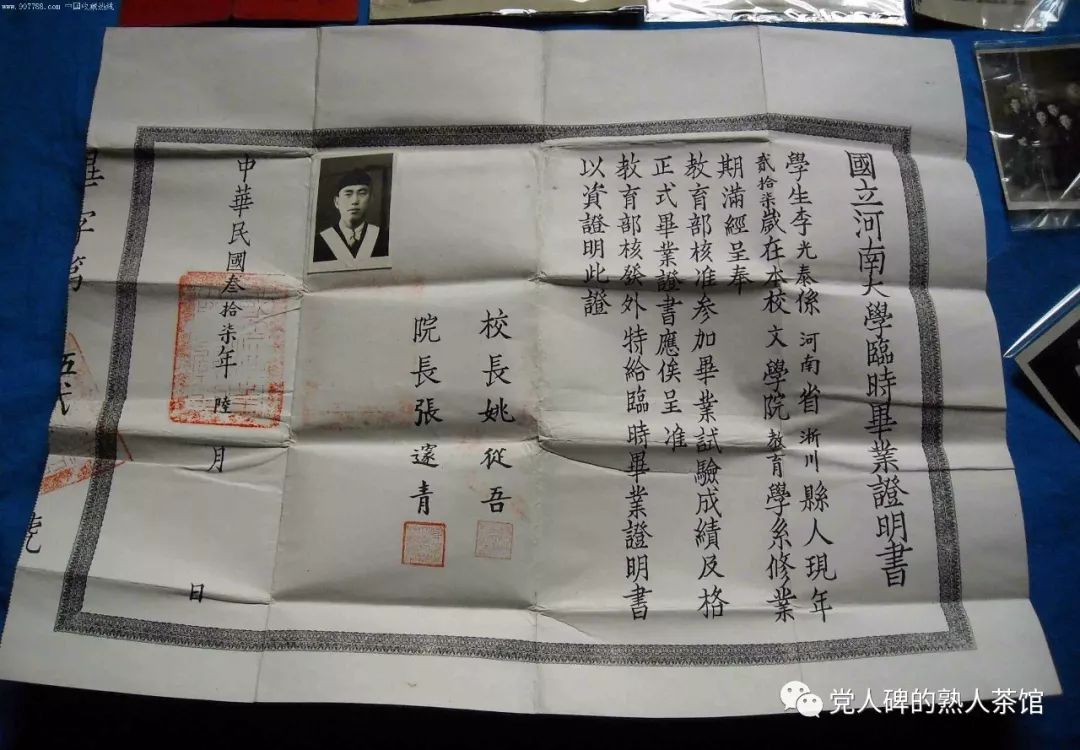 www.997788.com 中国收藏热线
國立河南大學臨時畢業證明書
學生李光泰係河南省淅川縣人現年
貳拾柒歲在本校文學院教育學系修業
期滿經呈奉
教育部核准參加畢業試驗成績及格
正式畢業證書應俟呈准
教育部核發外特給臨時畢業證明書
以資證明此證
校長姚從吾
院長張邃青
中華民國叁拾柒年陸月 日
畢字第 號
党人碑的熟人茶馆